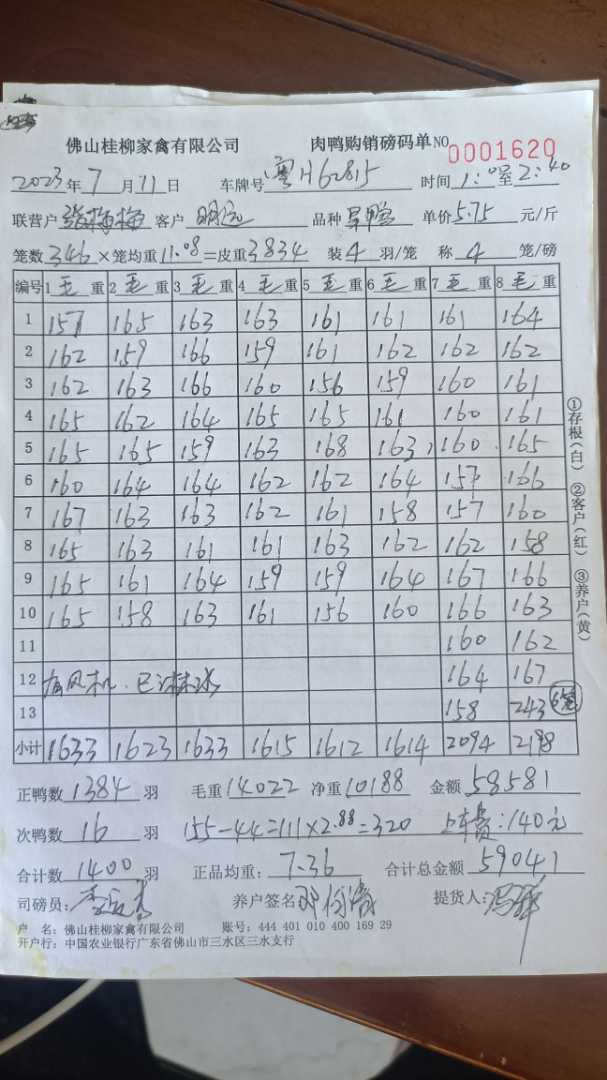 佛山桂柳家禽有限公司 肉鸭购销磅码单 NO 0001620
2023年7月11日 车牌号 粤H62815 时间 1:00至2:40
联营户 客户 明远 品种 旱鸭 单价 5.75 元/斤
笼数 346 × 笼均重 11.08 = 皮重 3834 装 4 羽/笼 称 4 笼/磅
编号 1毛重 2毛重 3毛重 4毛重 5毛重 6毛重 7毛重 8毛重
1 157 165 163 163 161 161 161 164
2 162 159 166 159 161 162 162 162
3 162 163 166 160 156 159 160 161
4 165 162 164 165 165 161 160 161
5 165 165 159 163 168 163 160 165
6 160 164 164 162 162 164 157 166
7 167 163 163 162 161 158 157 160
8 165 163 161 161 163 162 162 158
9 165 161 164 159 159 164 167 166
10 165 158 163 161 156 160 166 163
11 160 162
12 有风机.已淋水 164 167
13 158 243 6笼
小计 1633 1623 1633 1615 1612 1614 2094 2198
正鸭数 1384 羽 毛重 14022 净重 10188 金额 58581
次鸭数 16 羽 155-44=111×2.88=320 上车费:140元
合计数 1400 羽 正品均重: 7.36 合计总金额 59041
司磅员: 养户签名 提货人:
户 名: 佛山桂柳家禽有限公司 账号: 444 401 010 400 169 29
开户行: 中国农业银行广东省佛山市三水区三水支行
①存根(白) ②客户(红) ③养户(黄)